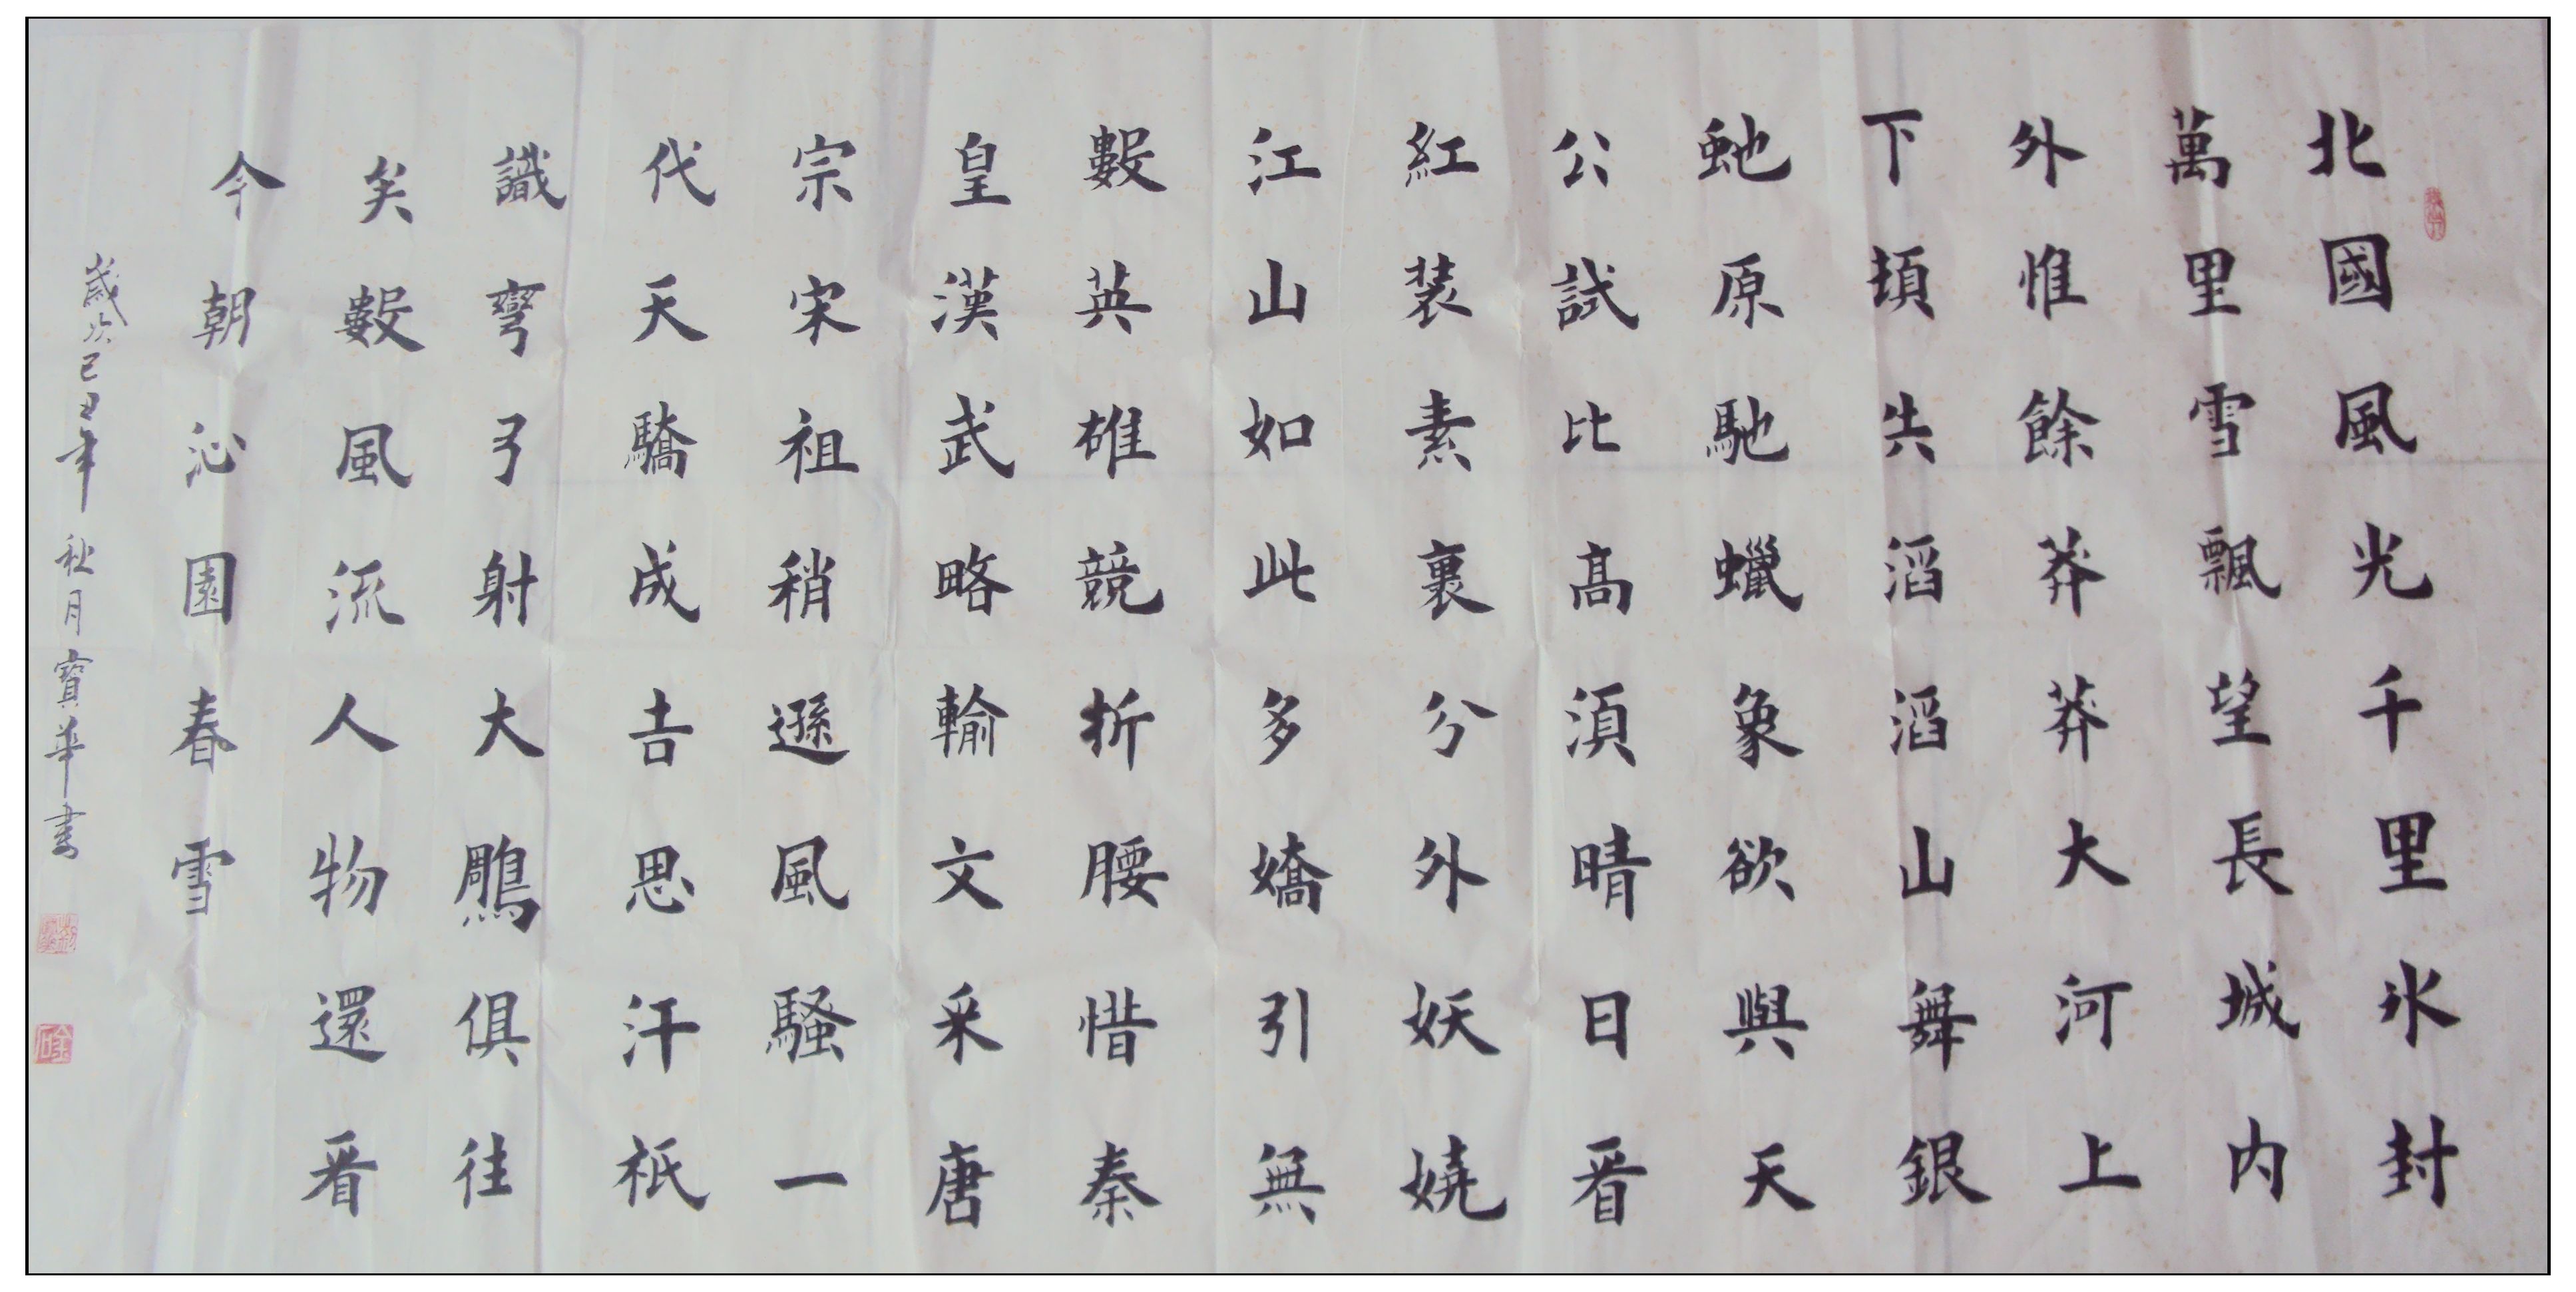 北國風光千里氷封
萬里雪飄望長城内
外惟餘莽莽大河上
下頓失滔滔山舞銀
虵原馳蠟象欲與天
公試比髙湏晴日看
紅装素裹分外妖嬈
江山如此多嬌引無
數英雄競折腰惜秦
皇漢武略輸文采唐
宗宋祖稍遜風騷一
代天驕成吉思汗祇
識彎弓射大鵰俱往
矣數風流人物還看
今朝沁園春雪
歲次己丑年秋月寶華書